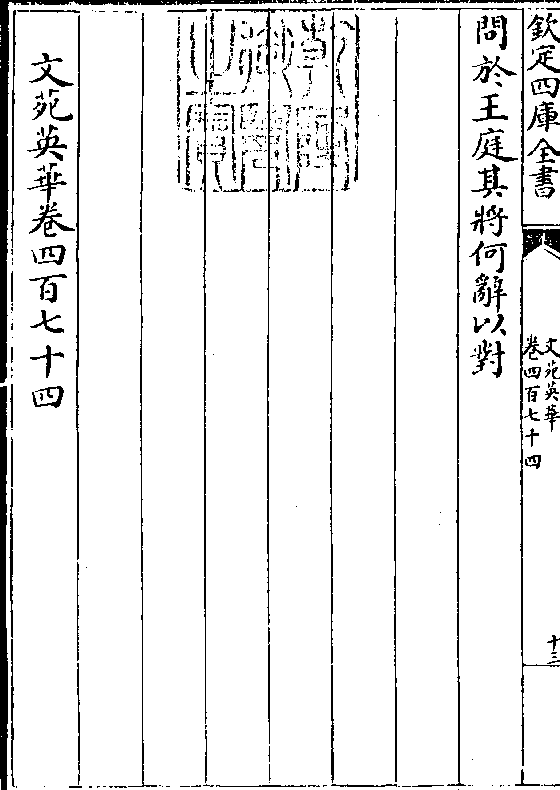 欽定四庫全書
文苑英華
卷四百七十四
十三
問於王庭其將何辭以對
乾隆御覽之寶
文苑英華卷四百七十四